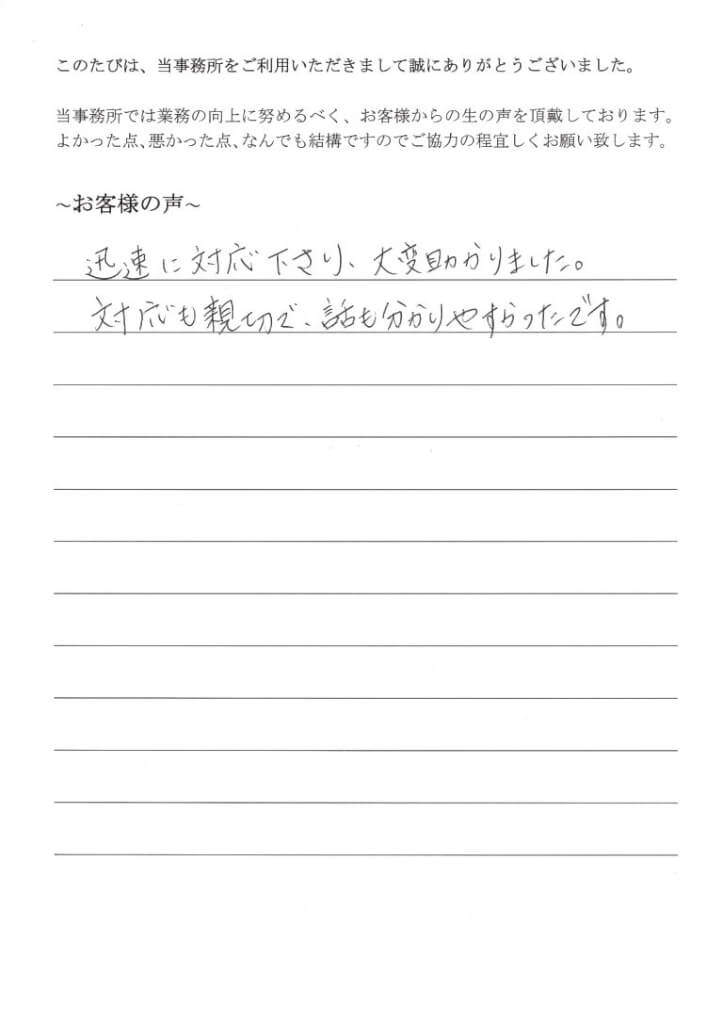 このたびは、当事務所をご利用いただきまして誠にありがとうございました。
当事務所では業務の向上に努めるべく、お客様からの生の声を頂戴しております。
よかった点、悪かった点、なんでも結構ですのでご協力の程宜しくお願い致します。
~お客様の声~
迅速に対応下さり、大変助かりました。
対応も親切で、話も分かりやすかったです。